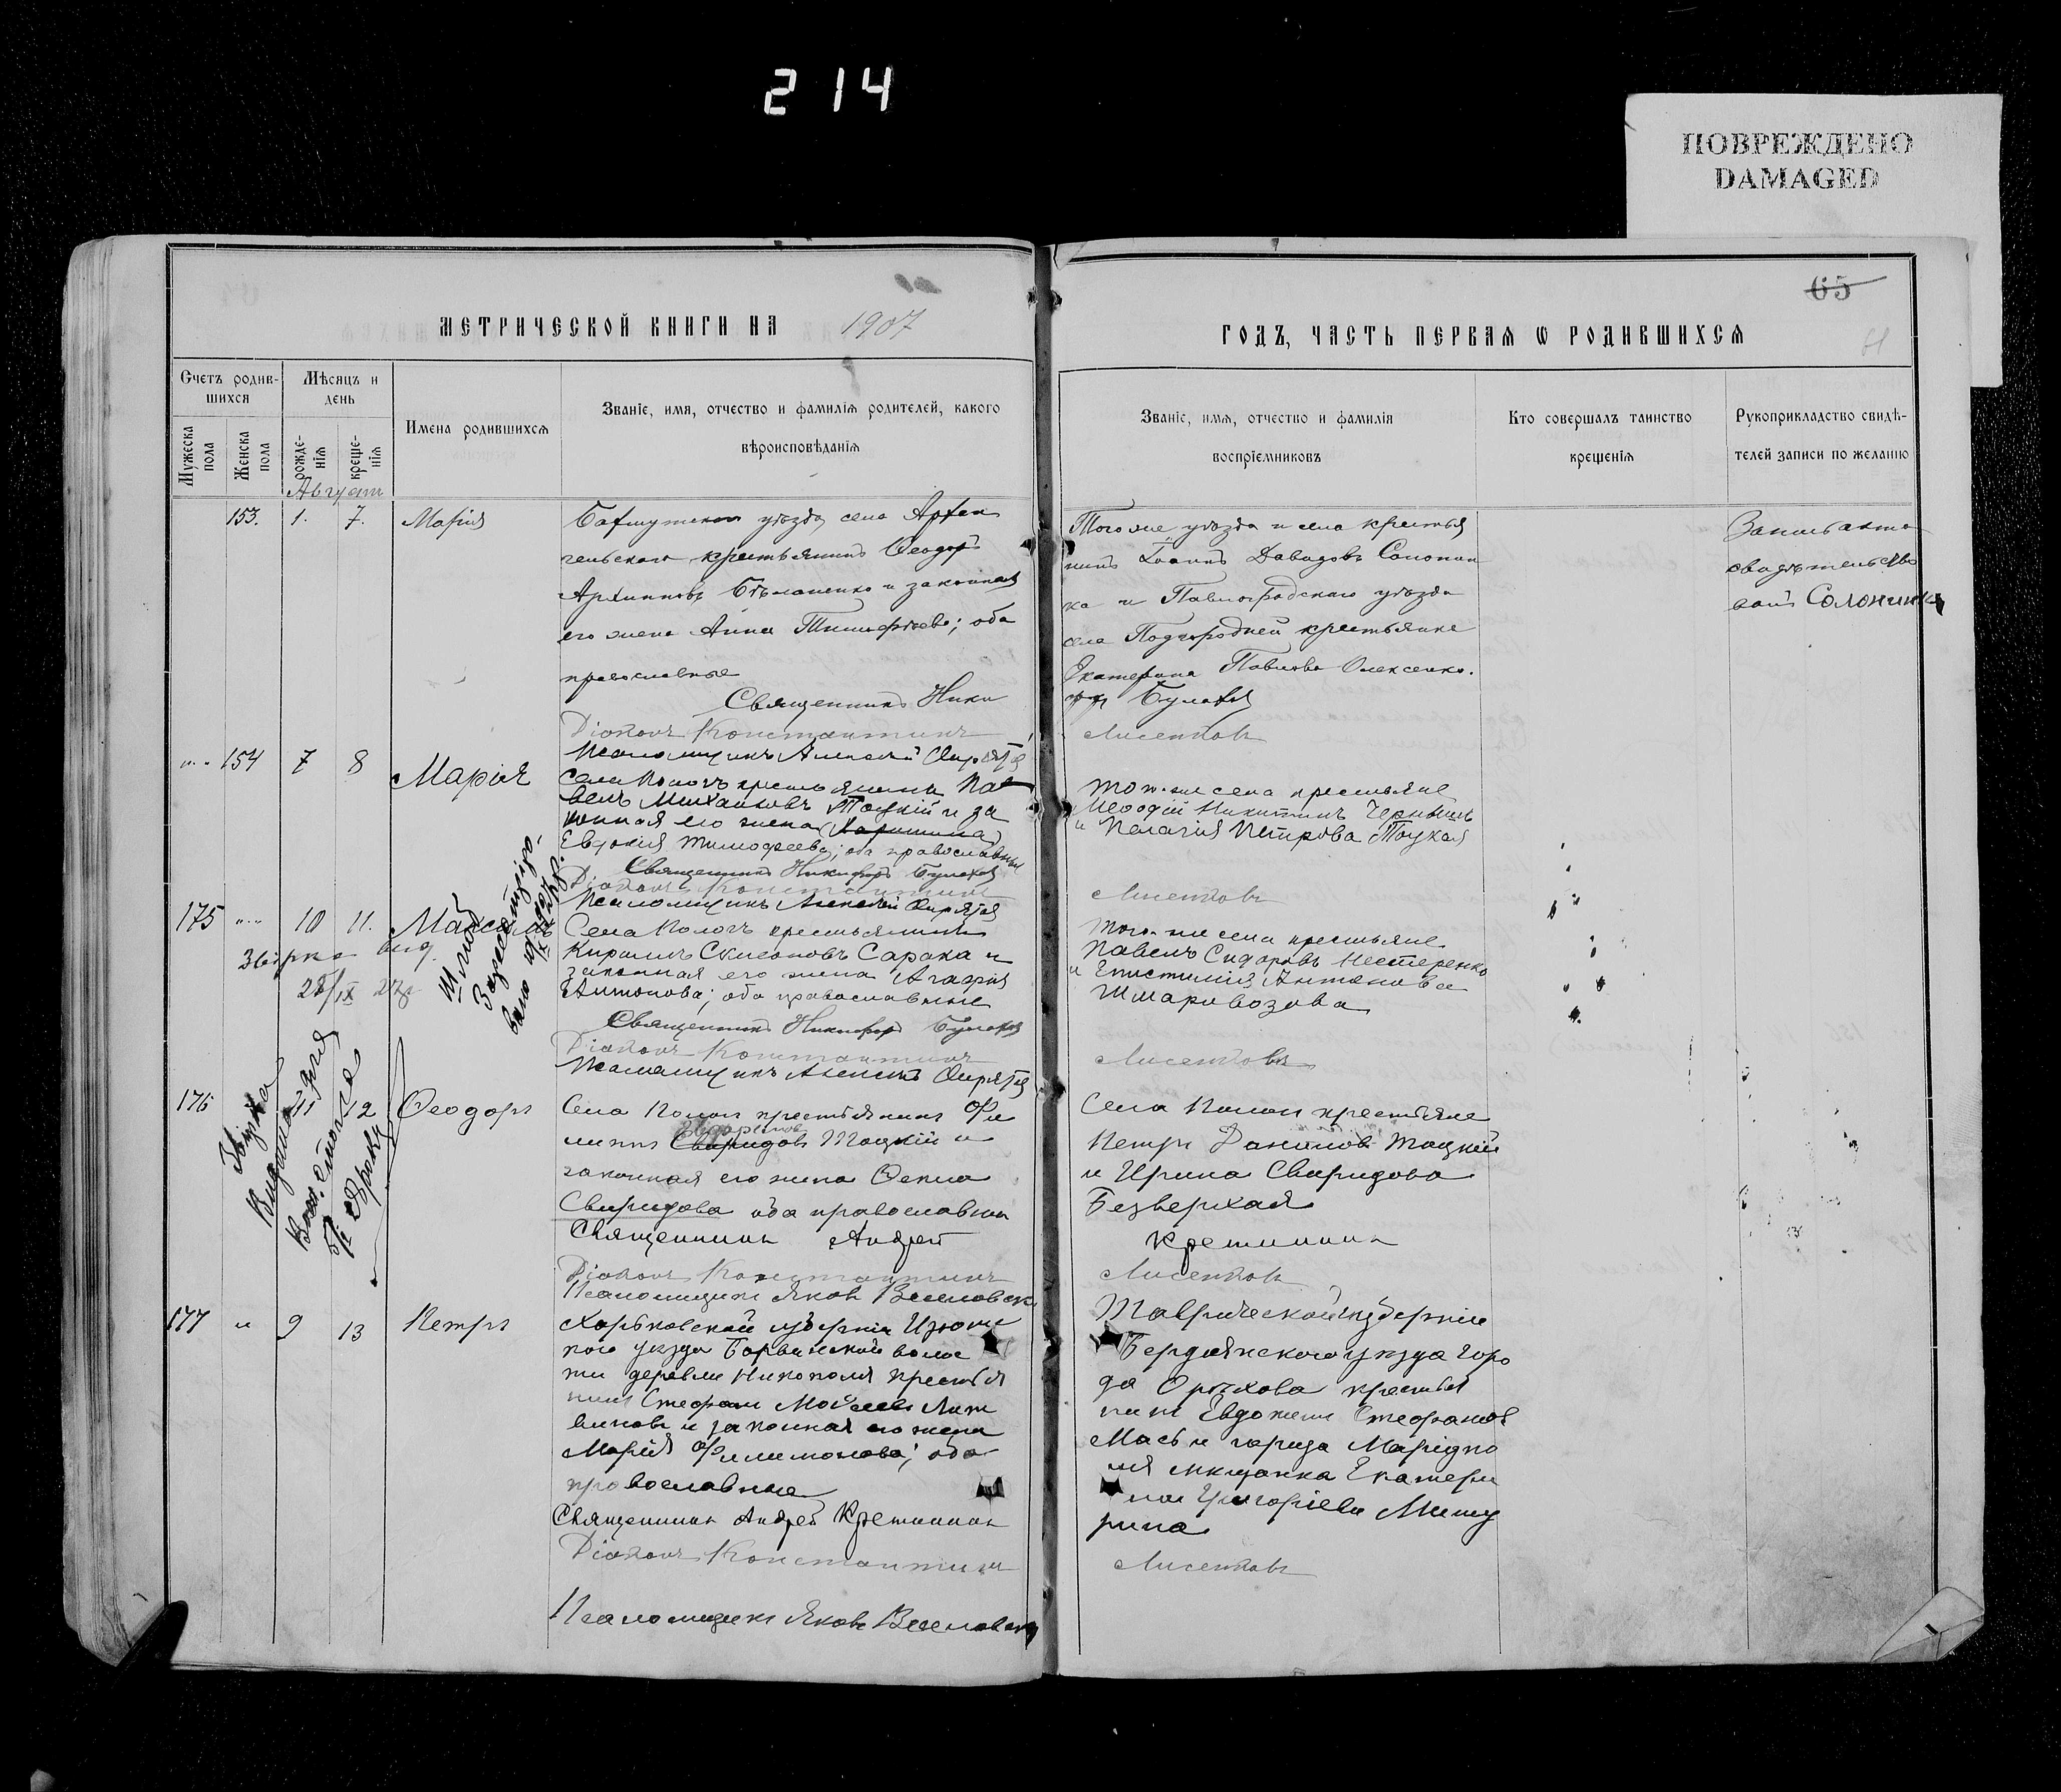 214
ПОВРЕЖДЕНО
DAMAGED
65
МЕТРИЧЕСКОЙ КНИГИ НА 1907
ГОДЪ, ЧАСТЬ ПЕРВАЯ Ѡ РОДИВШИХСЯ
Счетъ родив-
шихся
Мѣсяцъ и
день
Имена родившихся
Званіе, имя, отчество и фамилія родителей, какого
вѣроисповѣданія
Мужеска
пола
Женска
пола
рожде-
нія
креще-
нія
Званіе, имя, отчество и фамилія
воспріемниковъ
Кто совершалъ таинство
крещенія
Рукоприкладство свидѣ-
телей записи по желанію
Августъ
153. 1. 7. Марія
Бахмутскаго уѣзда, села Архан
гельскаго крестьянинъ Ѳеодоръ
Архиповъ и законная
его жена Анна Тимофѣева; оба
православные
Священникъ Ники
Діаконъ Константинъ
Псаломщикъ Алексей
Того же уѣзда и села крестья
нинъ Іоаннъ Давидовъ Солонин
ка и Павлоградскаго уѣзда
села Подгородней крестьянка
Екатерина Павлова Олексенко.
форъ Булахъ
Лисенковъ
свидѣтельство
валъ Солонинка
154 7 8 Марія
Села Пологъ крестьянинъ Па
велъ Михайловъ Тоцкій и за
конная его жена
Евдокія Тимофеева; оба православные
Священникъ Никифоръ Булахъ
Діаконъ Константинъ
Псаломщикъ Алексей
Того-же села крестьяне
Меѳодій Никитинъ
и Пелагія Петрова Тоцкая
Лисенковъ
175 10 11. Максимъ
Села Пологъ крестьянинъ
Кириллъ Сарака и
законная его жена Агафія
Антонова; оба православные
Священникъ Никифоръ Булахъ
Діаконъ Константинъ
Псаломщикъ Алексей
Того-же села крестьяне
Павелъ Сидоровъ Нестеренко
и Епистимія Антонова
Шмаровозова
Лисенковъ
28/IX 27р
176 11 12 Ѳеодоръ
Села Пологи крестьянинъ Фи
липпъ Тоцкій и
законная его жена Ѳекла
Свиридова оба православны
Священникъ Андрей
Діаконъ Константинъ
Псаломщикъ Яковъ
Села Пологи крестьяне
Петръ Даниловъ Тоцкій
и Ирина Свиридова
Безверхая
Лисенковъ
177 9 13 Петръ
Харьковской губерніи Изюмс
кого уезда волос
ти деревни Никополя крестья
нинъ Стефанъ Моисеевъ Лит
виновъ и законная его жена
Марія Филимонова; оба
православные
Священникъ Андрей
Діаконъ Константинъ
Псаломщикъ Яковъ
Таврической губерніи
Бердянского уезда горо
да Орехова крестья
нинъ Стефановъ
и города Маріупо
ля мещанка Екатери
на Григоріева
Лисенковъ